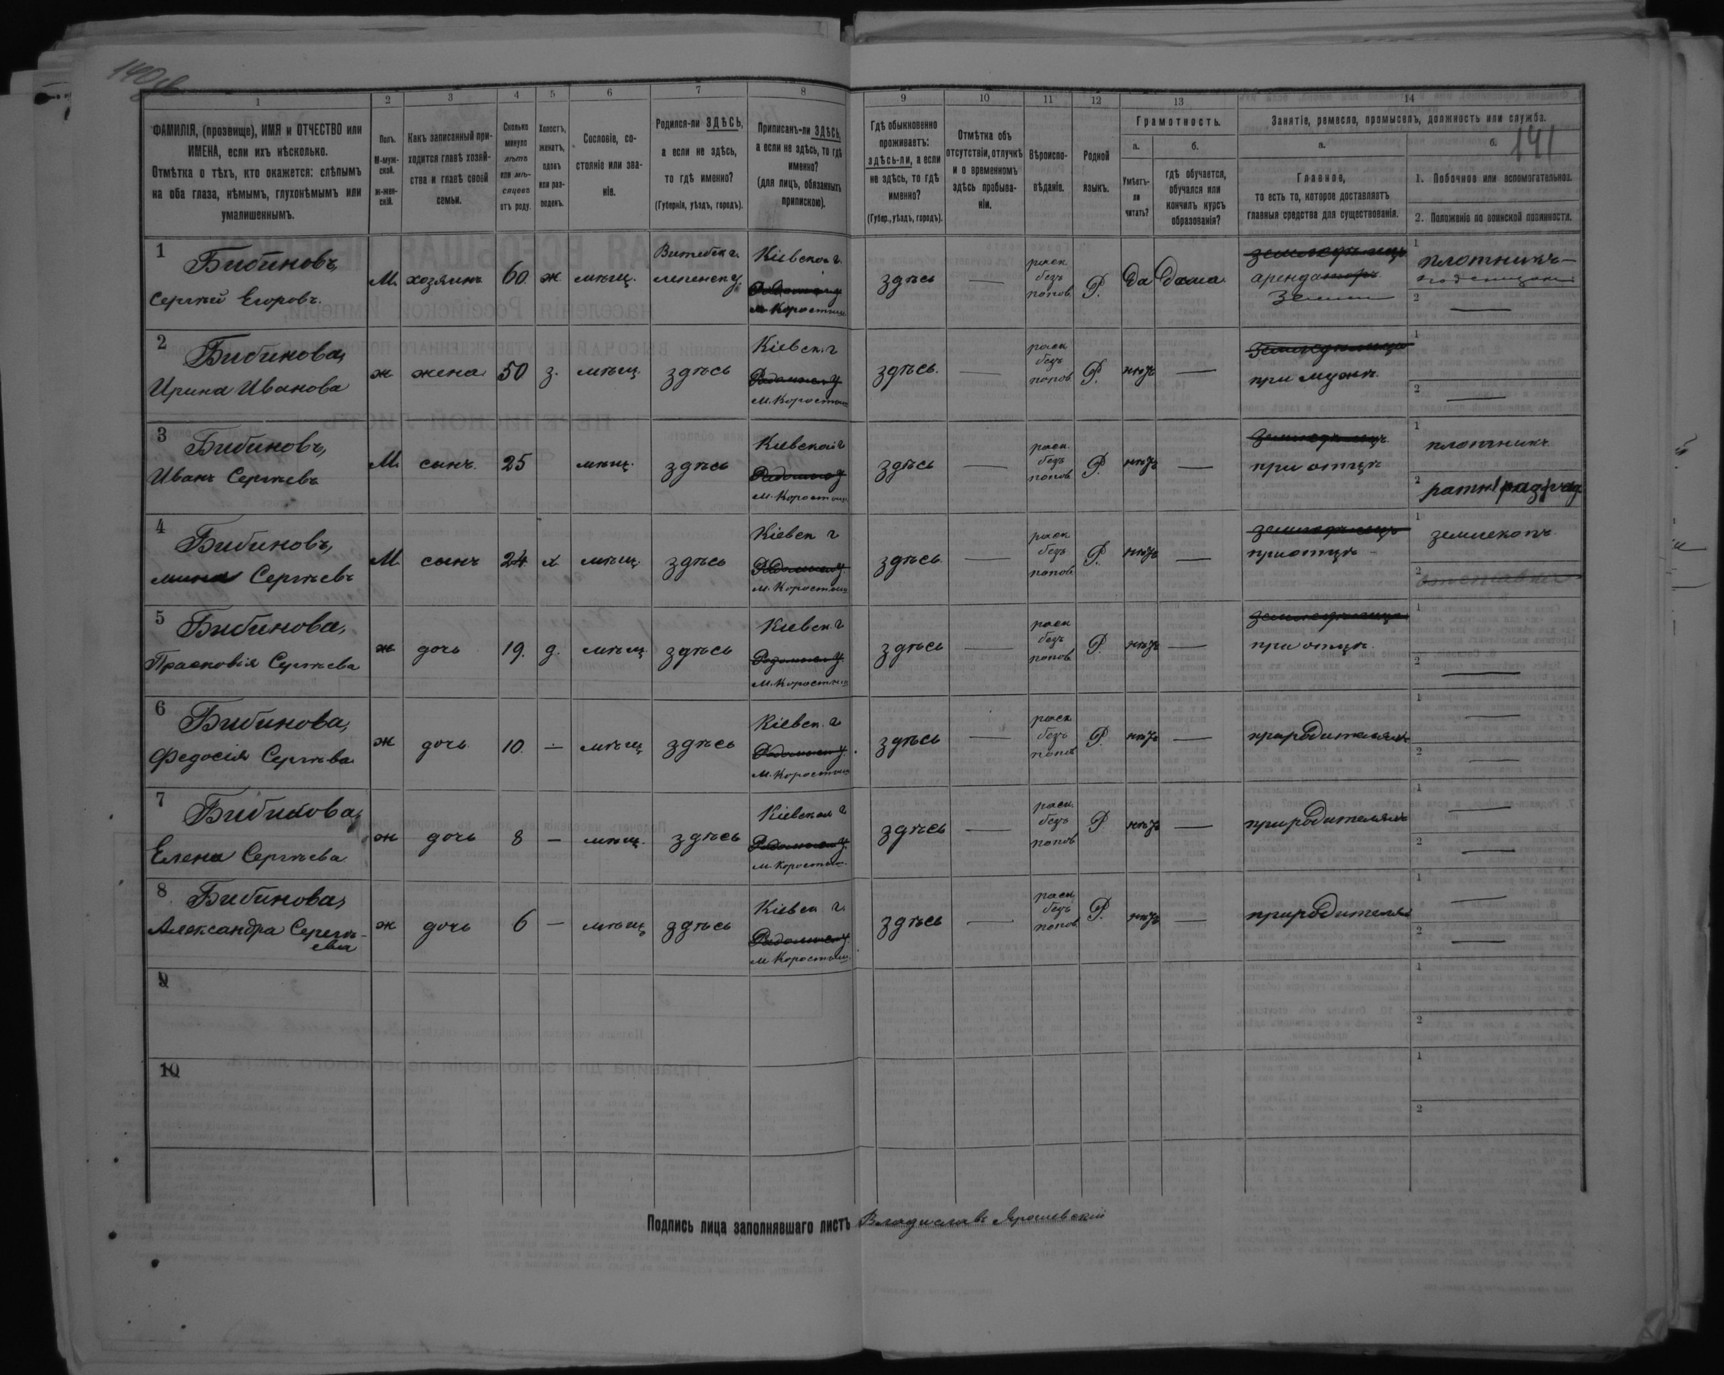 140 об
141
1 2 3 4 5 6 7 8 9 10 11 12 13 14
ФАМИЛІЯ, (прозвище), ИМЯ и ОТЧЕСТВО или
ИМЕНА, если ихъ нѣсколько.
Отмѣтка о тѣхъ, кто окажется: слѣпымъ
на оба глаза, нѣмымъ, глухонѣмымъ или
умалишеннымъ.
Полъ.
М-муж-
ской.
ж-жен-
скій.
Какъ записанный при-
ходится главѣ хозяй-
ства и главѣ своей
семьи.
Сколько
минуло
лѣтъ
или мѣ-
сяцевъ
отъ роду.
Холостъ,
женатъ,
вдовъ
или раз-
веденъ.
Сословіе, со-
стояніе или зва-
ніе.
Родился-ли ЗДѢСЬ,
а если не здѣсь,
то гдѣ именно?
(Губернія, уѣздъ, городъ).
Приписанъ-ли ЗДѢСЬ,
а если не здѣсь, то гдѣ
именно?
(для лицъ, обязанныхъ
припискою).
Гдѣ обыкновенно
проживаетъ:
здѣсь-ли, а если
не здѣсь, то гдѣ
именно?
(Губер., уѣздъ, городъ).
Отмѣтка объ
отсутствіи, отлучкѣ
и о временномъ
здѣсь пребыва-
ніи.
Вѣроиспо-
вѣданіе.
Родной
языкъ.
Грамотность.
а.
Умѣетъ-
ли
читать?
б.
гдѣ обучается,
обучался или
кончилъ курсъ
образованія?
Занятіе, ремесло, промыселъ, должность или служба.
а.
Главное,
то есть то, которое доставляетъ
главныя средства для существованія.
б.
1. Побочное или вспомогательное.
2. Положеніе по воинской повинности.
1 Бибиновъ, Сергей Егоровъ М. хозяинъ 60 ж мѣщ. Витебск г. Кіевской г. м Коростыш здѣсь — раск. безъ попов. Р. да дома земледѣлецъ арендаторъ земли 1 плотникъ 2 —
2 Бибинова, Ирина Иванова ж жена 50 з. мѣщ. здѣсь Кіевск. г Радомыск у м. Коростыш здѣсь. — раск безъ попов Р. нѣтъ — земледѣлица при мужѣ 1 2 —
3 Бибиновъ, Иванъ Сергѣевъ М. сынъ 25 мѣщ. здѣсь Кіевской г Радомыс у м. Коростыш здѣсь — раск безъ попов Р. нѣтъ — земледѣлецъ при отцѣ 1 плотникъ 2
4 Бибиновъ, Мина Сергѣевъ М сынъ 24 х мѣщ. здѣсь Кіевск г Радомыск у м. Коростыш здѣсь — раск безъ попов Р. нѣтъ — земледѣлецъ при отцѣ 1 землекопъ 2
5 Бибинова, Прасковія Сергѣева ж дочь 19. д. мѣщ здѣсь Кіевск г Радомыск у м. Коростыш здѣсь — раск безъ попов Р. нѣтъ — земледѣлица при отцѣ. 1 2 —
6 Бибинова, Федосія Сергѣева ж дочь 10 — мѣщ здѣсь Кіевск. г Радомыск у м. Коростыш здѣсь — раск безъ попов Р. нѣтъ — при родителяхъ 1 — 2 —
7 Бибинова, Елена Сергѣева ж дочь 8 — мѣщ. здѣсь Кіевской г Радомыск у м Коростыш здѣсь — раск. безъ попов Р нѣтъ — при родителяхъ 1 — 2 —
8 Бибинова, Александра Сергѣ-ева ж дочь 6 — мѣщ здѣсь Кіевск г Радомыск у м Коростыш здѣсь — раск безъ попов Р. нѣтъ — при родителя 1 — 2 —
9 1 2
10 1 2
Подпись лица заполнявшаго листъ Владиславъ Ярошевскій